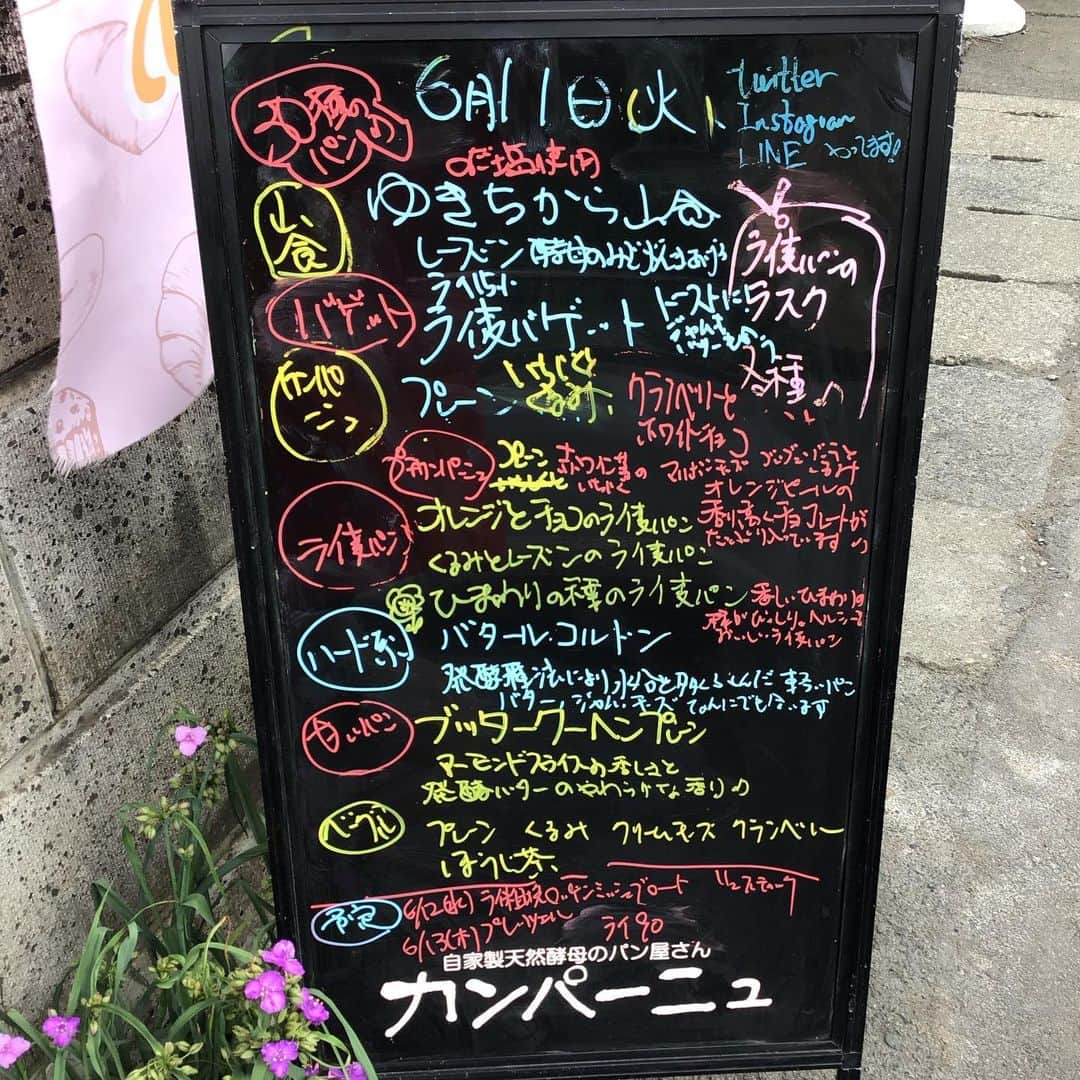 6月11日(火)
Twitter
Instagram
LINE やってます!
のだ塩使用
山食
ゆきちから山食
レーズン
ライ麦パンの
ラスク
2種♪
バゲット
ライ麦バゲット
トーストに
カンパーニュ
プレーン
いちじく
くるみ
クランベリーと
ホワイトチョコ
プチカンパーニュ
プレーン
いちじく
ライ麦パン
オレンジとチョコのライ麦パン
くるみとレーズンのライ麦パン
ひまわりの種のライ麦パン
オレンジピールの
香り高くチョコレートが
たっぷり入っています♪
香ばしいひまわりの
種がびっしり。ヘルシーで
おいしいライ麦パン
ハード系
バタール.コルドン
発酵種法により水分を多くふくんだ軽いパン
バター、ジャム、チーズ なんにでも合います
甘いパン
ブッタークーヘンプレーン
アーモンドスライスの香ばしさと
発酵バターのやわらかな香り♪
ベーグル
プレーン くるみ クリームチーズ クランベリー
ほうじ茶、
予定
6/12(水)
6/13(木)プレッツェル
ライ90
自家製天然酵母のパン屋さん
カンパーニュ